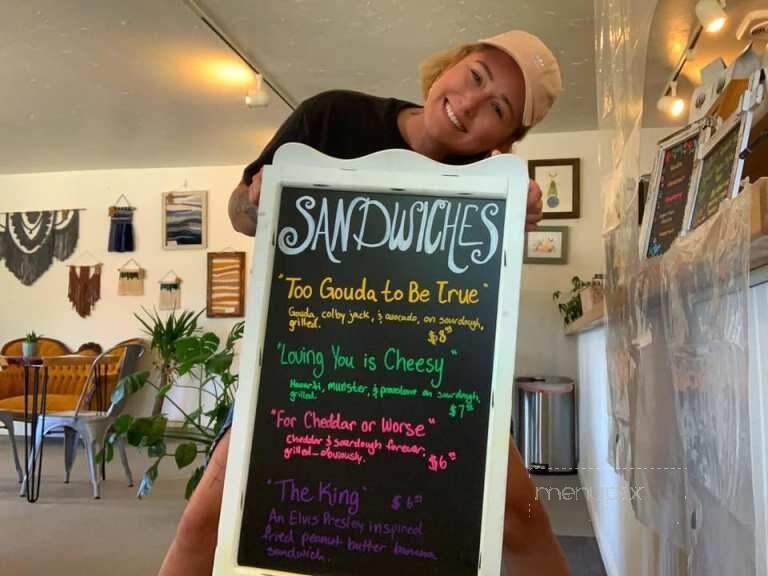 SANDWICHES
"Too Gouda to Be True"
Gouda, colby jack, & avocado, on sourdough,
grilled.
$8
"Loving You is Cheesy"
Havarti, munster, & provolone on sourdough,
grilled.
$7
"For Cheddar or Worse"
Cheddar & sourdough forever,
grilled-obviously.
$6
"The King" $6
An Elvis Presley inspired
fried peanut butter banana
sandwich.
menupix